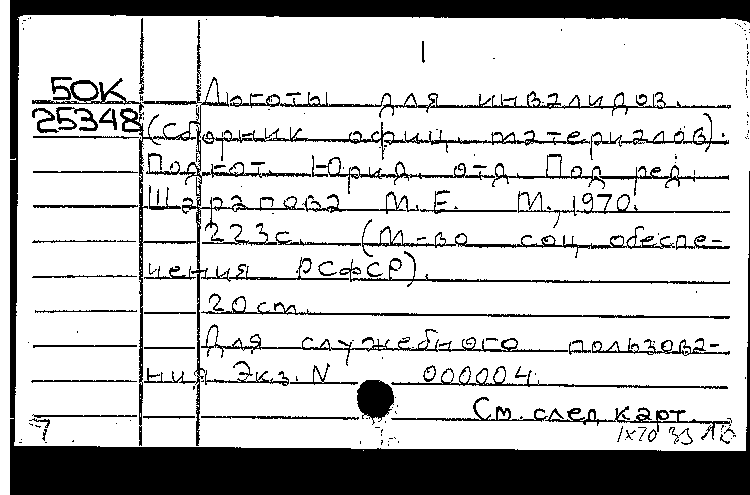 50К Льготы для инвалидов.
25348 (Сборник офиц. материалов).
Подгот. Юрид. отд. Под ред.
Шарапова М.Е. М., 1970.
223с. (М-во соц. обеспе-
чения РСФСР).
20 cm.
Для служебного пользова-
ния. Экз. N 000004.
См. след. карт.
7